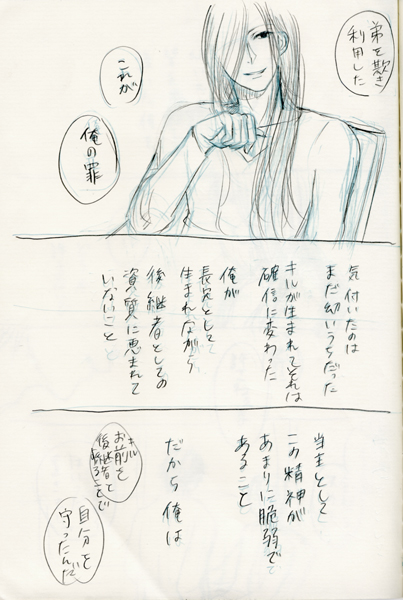 弟を欺き
利用した
これが
俺の罪
気付いたのは
まだ幼いうちだった
キルが生まれてそれは
確信に変わった
俺が
長兄として
生まれながら
後継者としての
資質に恵まれて
いないこと と
当主として
この精神が
あまりに脆弱で
あること
だから俺は
キル
お前を
後継者と
することで
自分を
守ったんだ